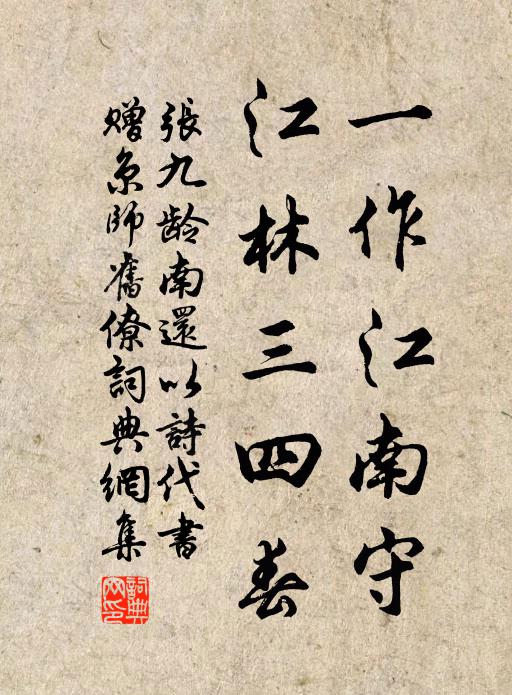 一作江南守
江林三四春
張九齡南還以詩代書
贈京師舊僚詞典網集
詞典
网印